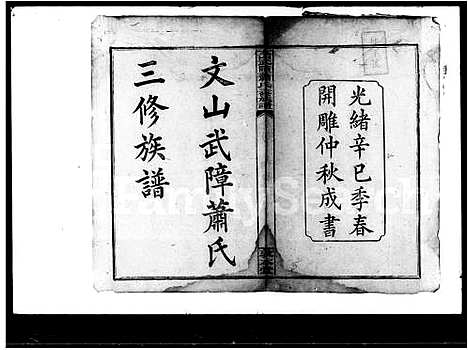 光緒辛巳季春
開雕仲秋成書
文山武障蕭氏
三修族譜